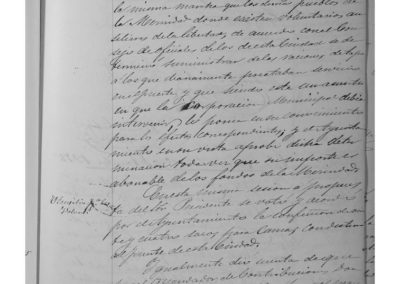 la misma manera que los demas pueblos de
la Merindad donde existen voluntarios au-
siliares de la libertad, de acuerdo con el Con-
sejo de oficiales de los de esta Ciudad se de-
terminó suministrar dos raciones de
a los que diariamente prestaban servicio
en el puente, y que siendo este un asunto
en que la Corporacion Municipal debia
intervenir, lo ponia en su conocimiento
para los efectos correspondientes; y el Ayunta-
miento en su vista aprobó dicha deter-
minacion toda vez que su importe es
abonable de los fondos de la Merindad
En esta misma sesion á propues-
ta del Sr. Presidente se votó y acordó
por el Ayuntamiento la confeccion de
te y cuatro sacos para camas con destino
al puente de esta Ciudad.
Igualmente dió cuenta de que
Recaudador de Contribuciones Don